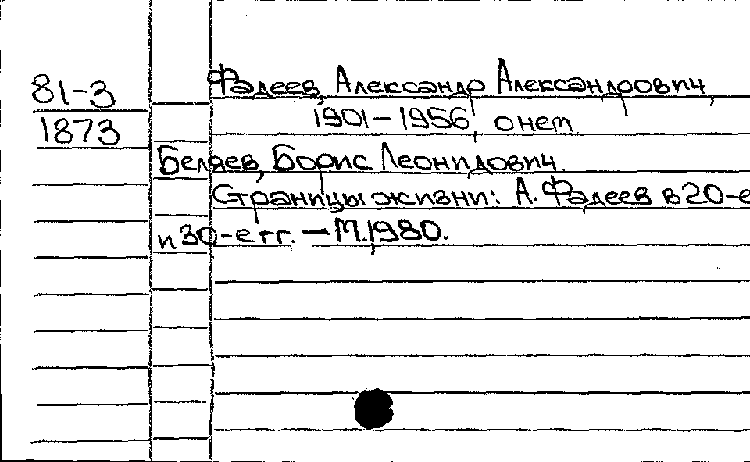 81-3
1873
Фадеев, Александр Александрович,
1901-1956, о нем
Беляев, Борис Леонидович.
Страницы жизни: А. Фадеев в 20-е
и 30-е гг. - М., 1980.